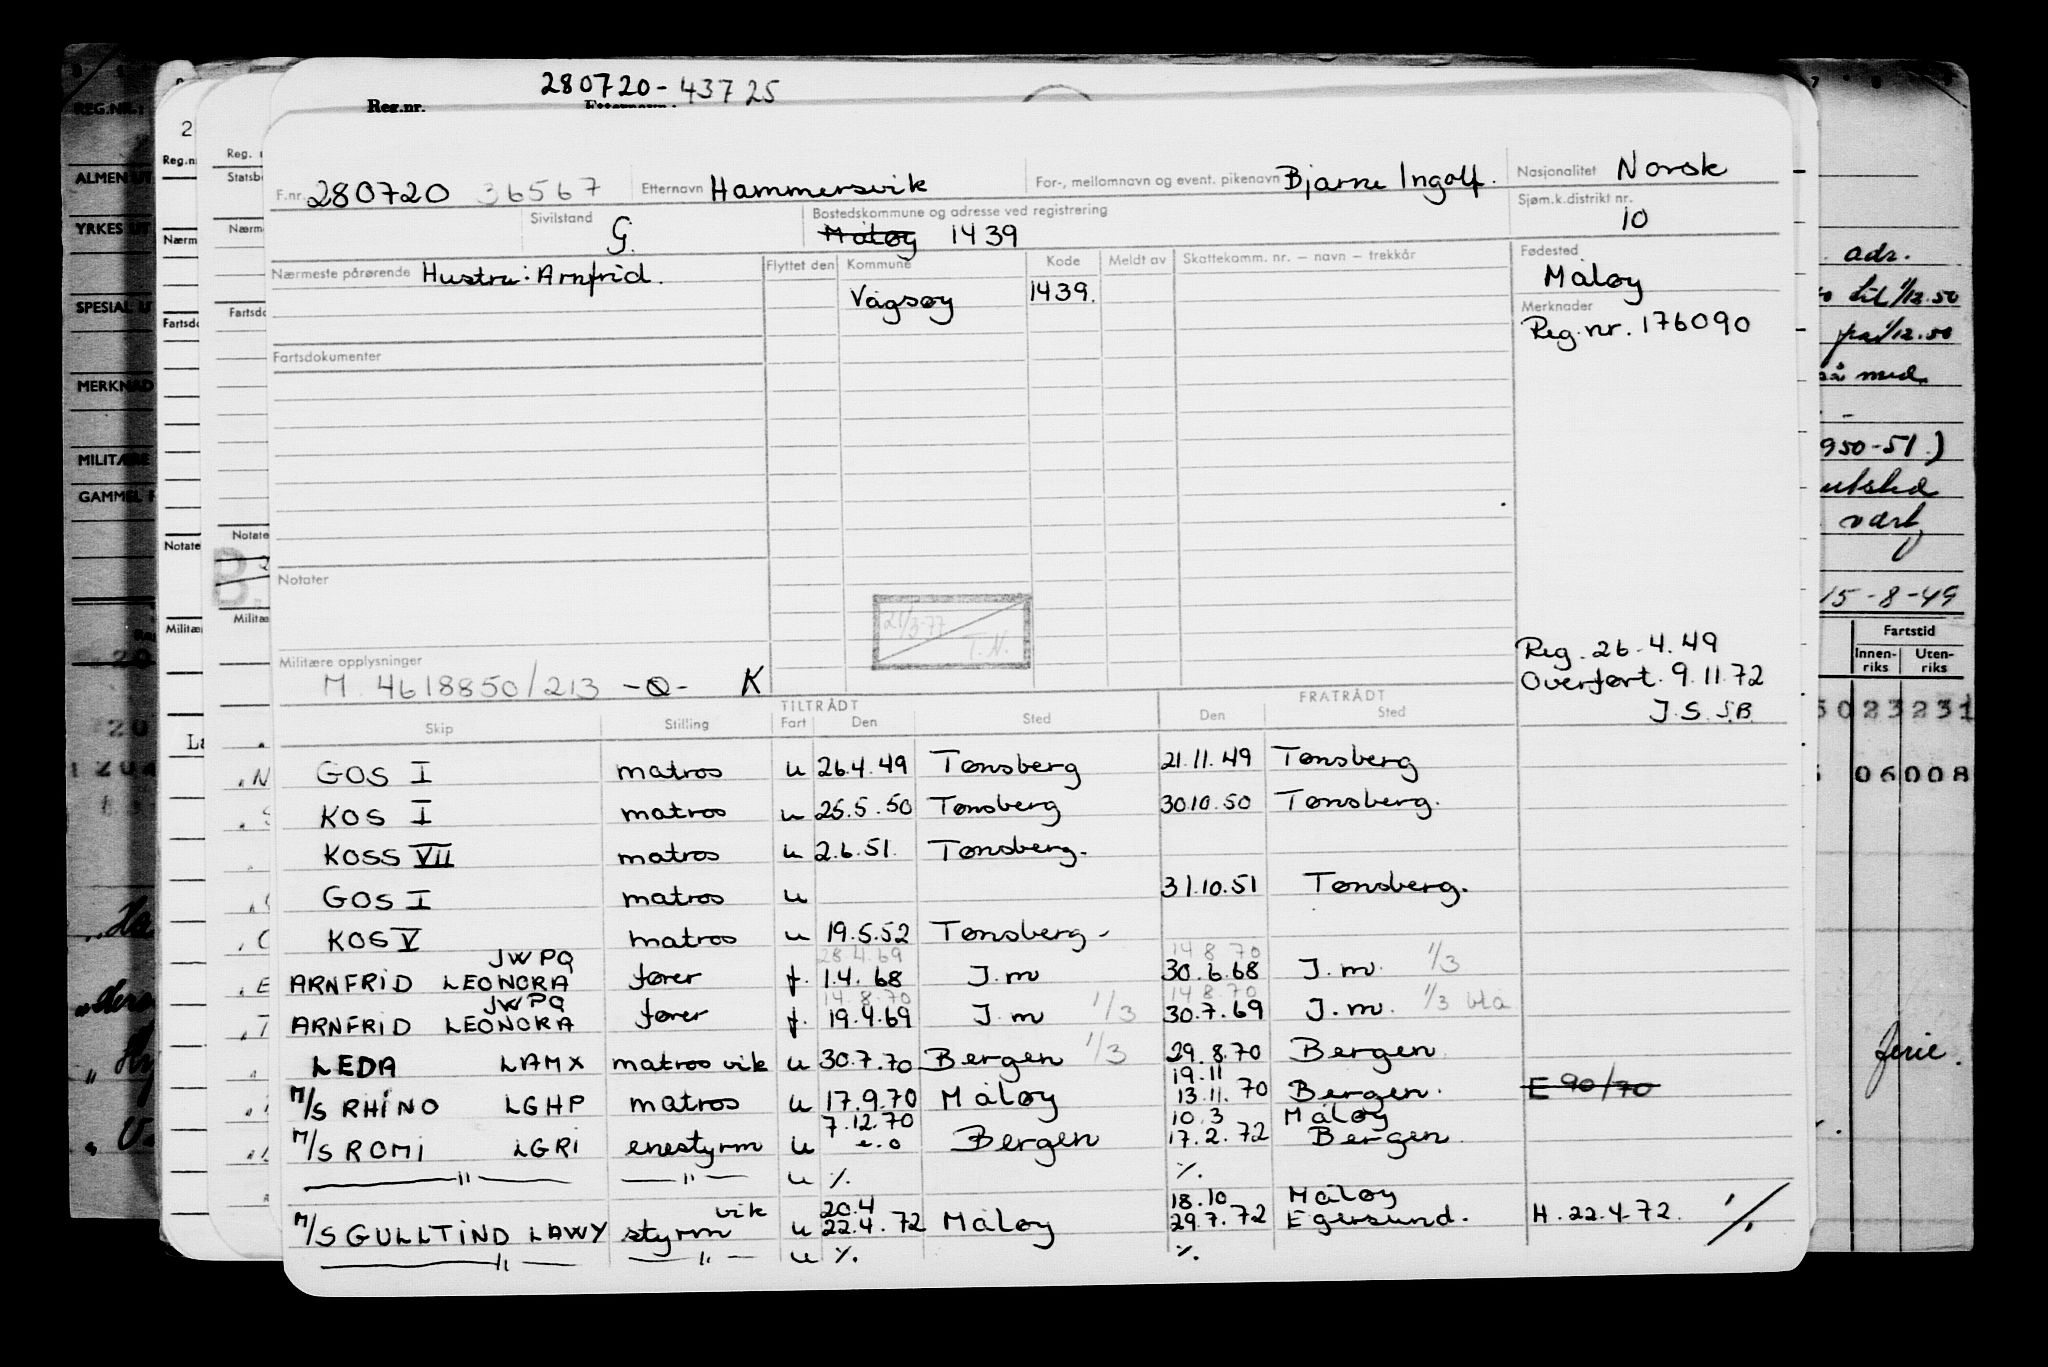 280720-43725
Reg.nr.
F.nr. 280720 36567 Etternavn Hammersvik For-, mellomnavn og event. pikenavn Bjarne Ingolf. Nasjonalitet Norsk
Sivilstand G. Bostedskommune og adresse ved registrering Måløy 1439 Sjøm.k.distrikt nr. 10
Nærmeste pårørende Hustru: Arnfrid. Flyttet den Kommune Kode Meldt av Skattekomm. nr. – navn – trekkår Fødested Måløy
Vågsøy 1439. Merknader
Reg.nr. 176090
Fartsdokumenter
Notater
21/3-77 T.N.
Militære opplysninger
M. 4618850/213 -O- K
Reg. 26.4.49
Overført. 9.11.72
J.S. S.B.
TILTRÅDT FRATRÅDT
Skip Stilling Fart Den Sted Den Sted
GOS I matros u 26.4.49 Tønsberg 21.11.49 Tønsberg
KOS I matros u 25.5.50 Tønsberg 30.10.50 Tønsberg.
KOSS VII matros u 2.6.51. Tønsberg.
GOS I matros u 31.10.51 Tønsberg.
KOS V matros u 19.5.52 Tønsberg-
JWPQ 28.4.69 14 8 70
ARNFRID LEONORA fører f. 1.4.68 J.m 30.6.68 J.m. 1/3
JWPQ 14.8.70 14 8.70
ARNFRID LEONORA fører f. 19.4.69 J.m 1/3 30.7.69 J.m. 1/3 blå
LEDA LAMX matros vik u 30.7.70 Bergen 1/3 29.8.70 Bergen
19.11
M/S RHINO LGHP matros u 17.9.70 Måløy 13.11.70 Bergen. E 90/70
7.12.70 10.3 Måløy
M/S ROMI LGRI enestyrm u e.o Bergen 17.2.72 Bergen
—"— —"— u ٪. ٪.
vik 20.4 18.10 Måløy
M/S GULLTIND LAWY styrm u 22.4.72 Måløy 29.7.72 Egersund. H.22.4.72. ٪
—"— —"— u ٪. ٪.
REG.NR.:
ALMEN UT
YRKES UT
SPESIAL UT
MERKNAD
MILITÆRE
GAMMEL
Reg.n
Nærm
Fartsdo
Notate
Militæ
Reg.
Statsbo
Nærm
Fartsdo
Notate
B.
Militæ
adr.
til 1/12.50
fra 1/12.50
på med.
950-51.)
utsted
15-8-49
Fartstid
Innenriks Utenriks
5023231
06008
ferie.